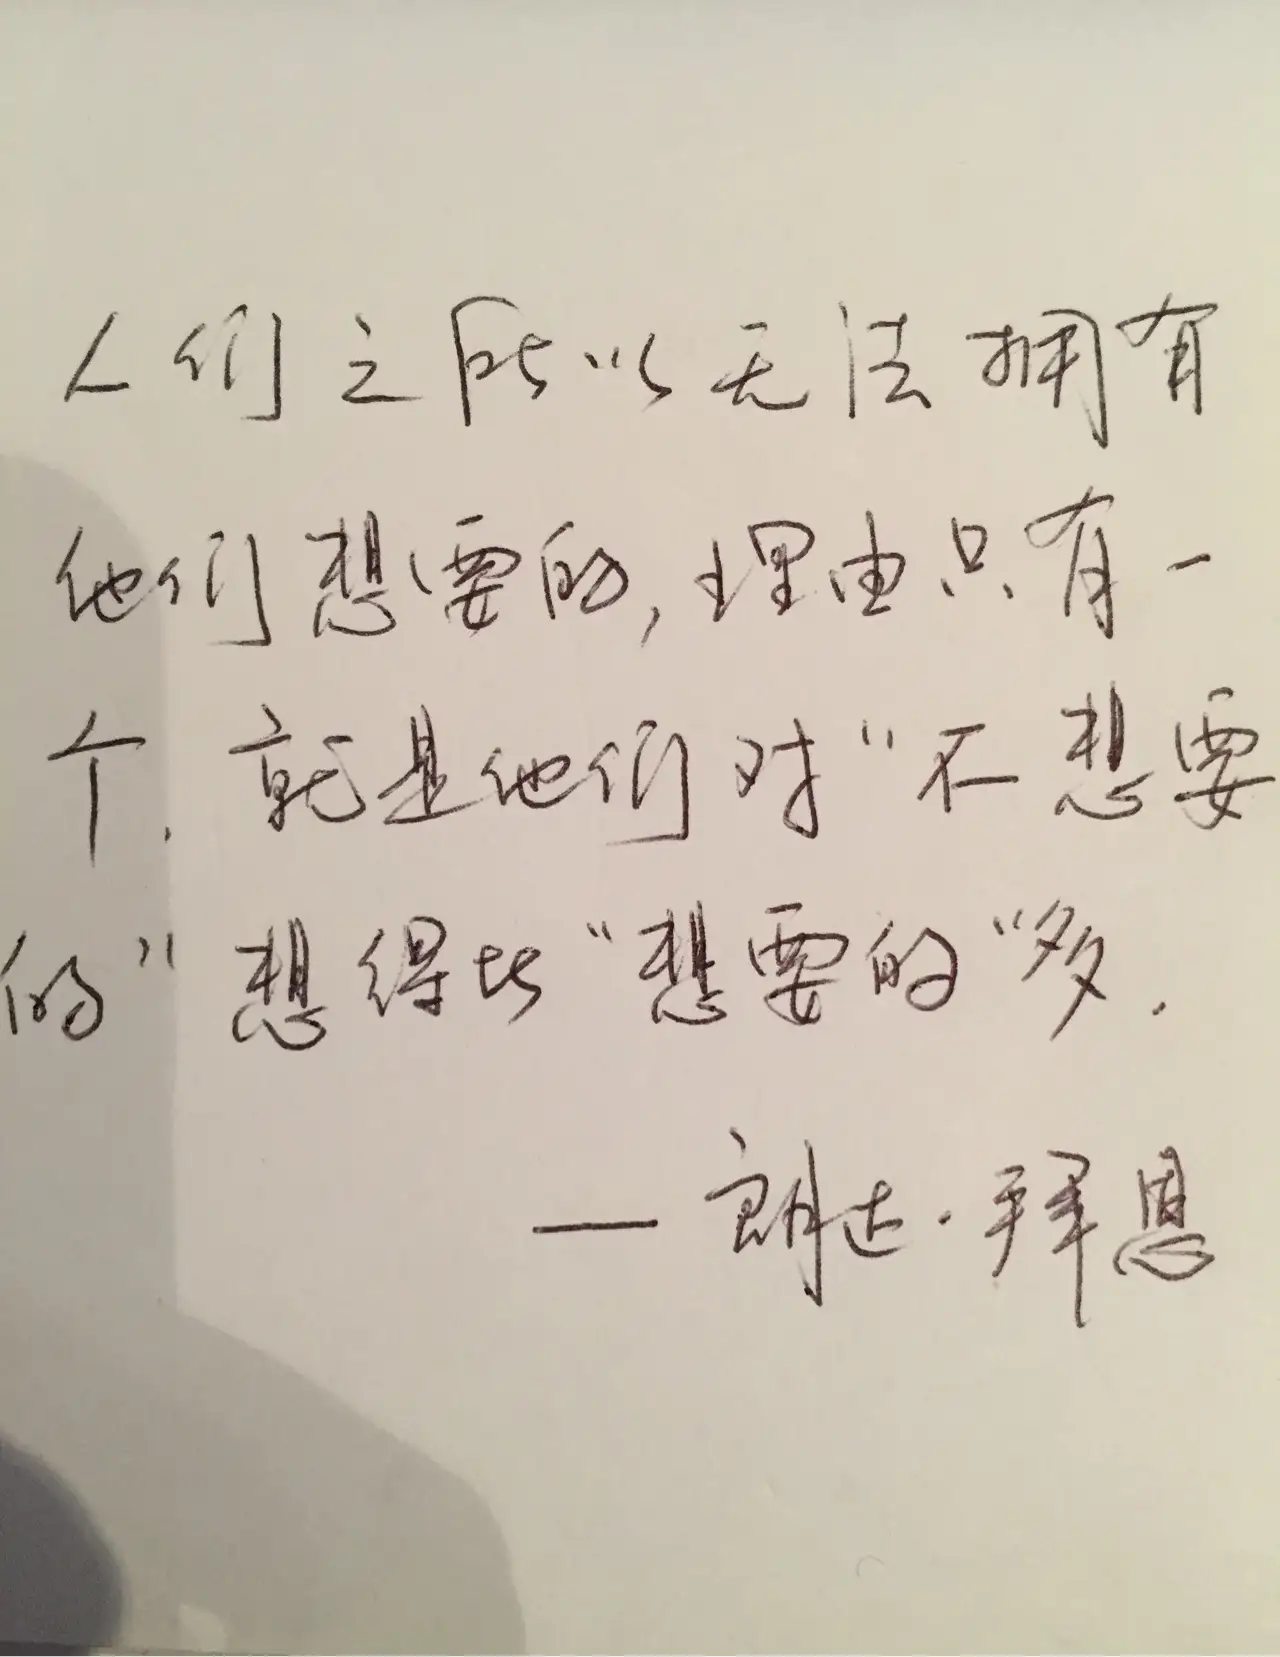 人们之所以无法拥有
他们想要的,理由只有一
个.就是他们对"不想要
的"想得比"想要的"多.
—朗达·拜恩